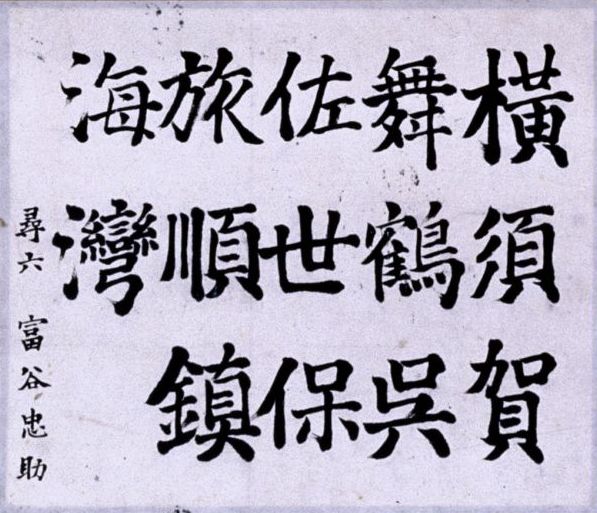 橫須賀
舞鶴吳
佐世保
旅順鎮
海灣
尋六 富谷忠助